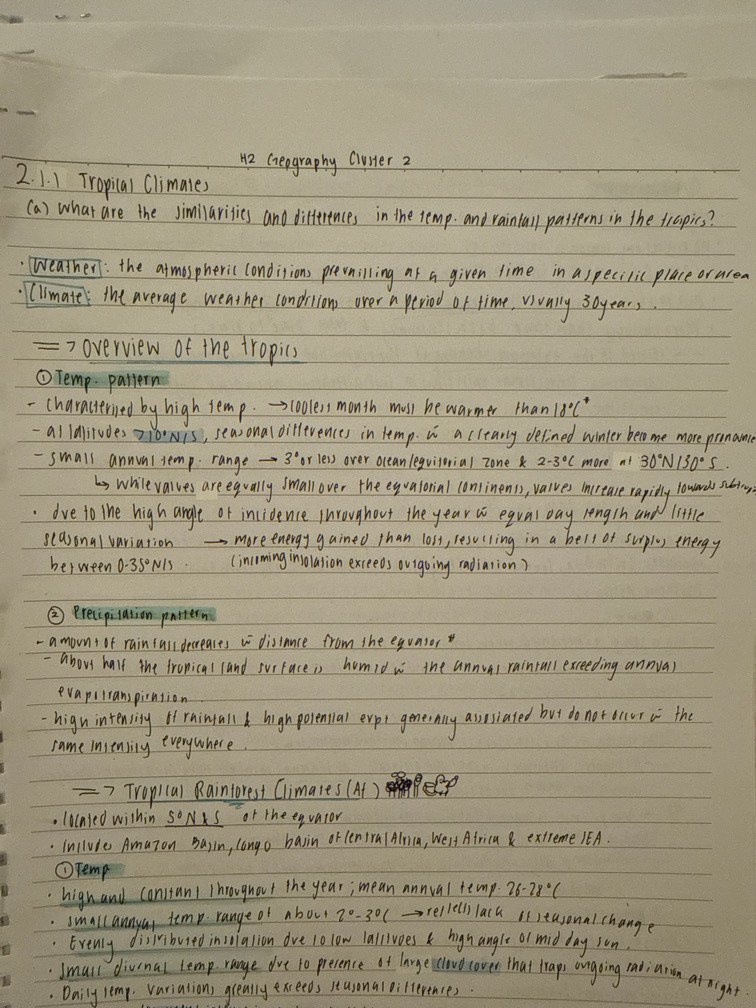 H2 Geography Cluster 2
2.1.1 Tropical Climates
(a) What are the similarities and differences in the temp. and rainfall patterns in the tropics?
• Weather: the atmospheric conditions prevailing at a given time in a specific place or area
• Climate: the average weather conditions over a period of time, usually 30 years.
=> Overview of the tropics
① Temp. pattern
- characterised by high temp. → coolest month must be warmer than 18°C*
- at latitudes >10°N/S, seasonal differences in temp. w a clearly defined winter become more pronounce
- small annual temp. range → 3° or less over ocean/equitorial zone & 2-3°C more at 30°N/30°S.
↳ While values are equally small over the equatorial continents, values increase rapidly towards
• due to the high angle of incidence throughout the year w equal day length and little
seasonal variation → more energy gained than lost, resulting in a belt of surplus energy
between 0-35°N/S. (incoming insolation exceeds outgoing radiation)
② Precipitation pattern
- amount of rainfall decreases w distance from the equator *
- About half the tropical land surface is humid w the annual rainfall exceeding annual
evapotranspiration
- high intensity of rainfall & high potential evpt generally associated but do not occur w the
same intensity everywhere.
=> Tropical Rainforest Climates (Af)
• located within 5°N & S of the equator
• Includes Amazon Basin, Congo basin of Central Africa, West Africa & extreme SEA.
① Temp
• high and constant throughout the year; mean annual temp. 26-28°C
• small annual temp. range of about 2°-3°C → reflects lack of seasonal change
• Evenly distributed insolation due to low latitudes & high angle of mid day sun.
• Small diurnal temp. range due to presence of large cloud cover that traps outgoing radiation at night
• Daily temp. variations greatly exceeds seasonal differences.